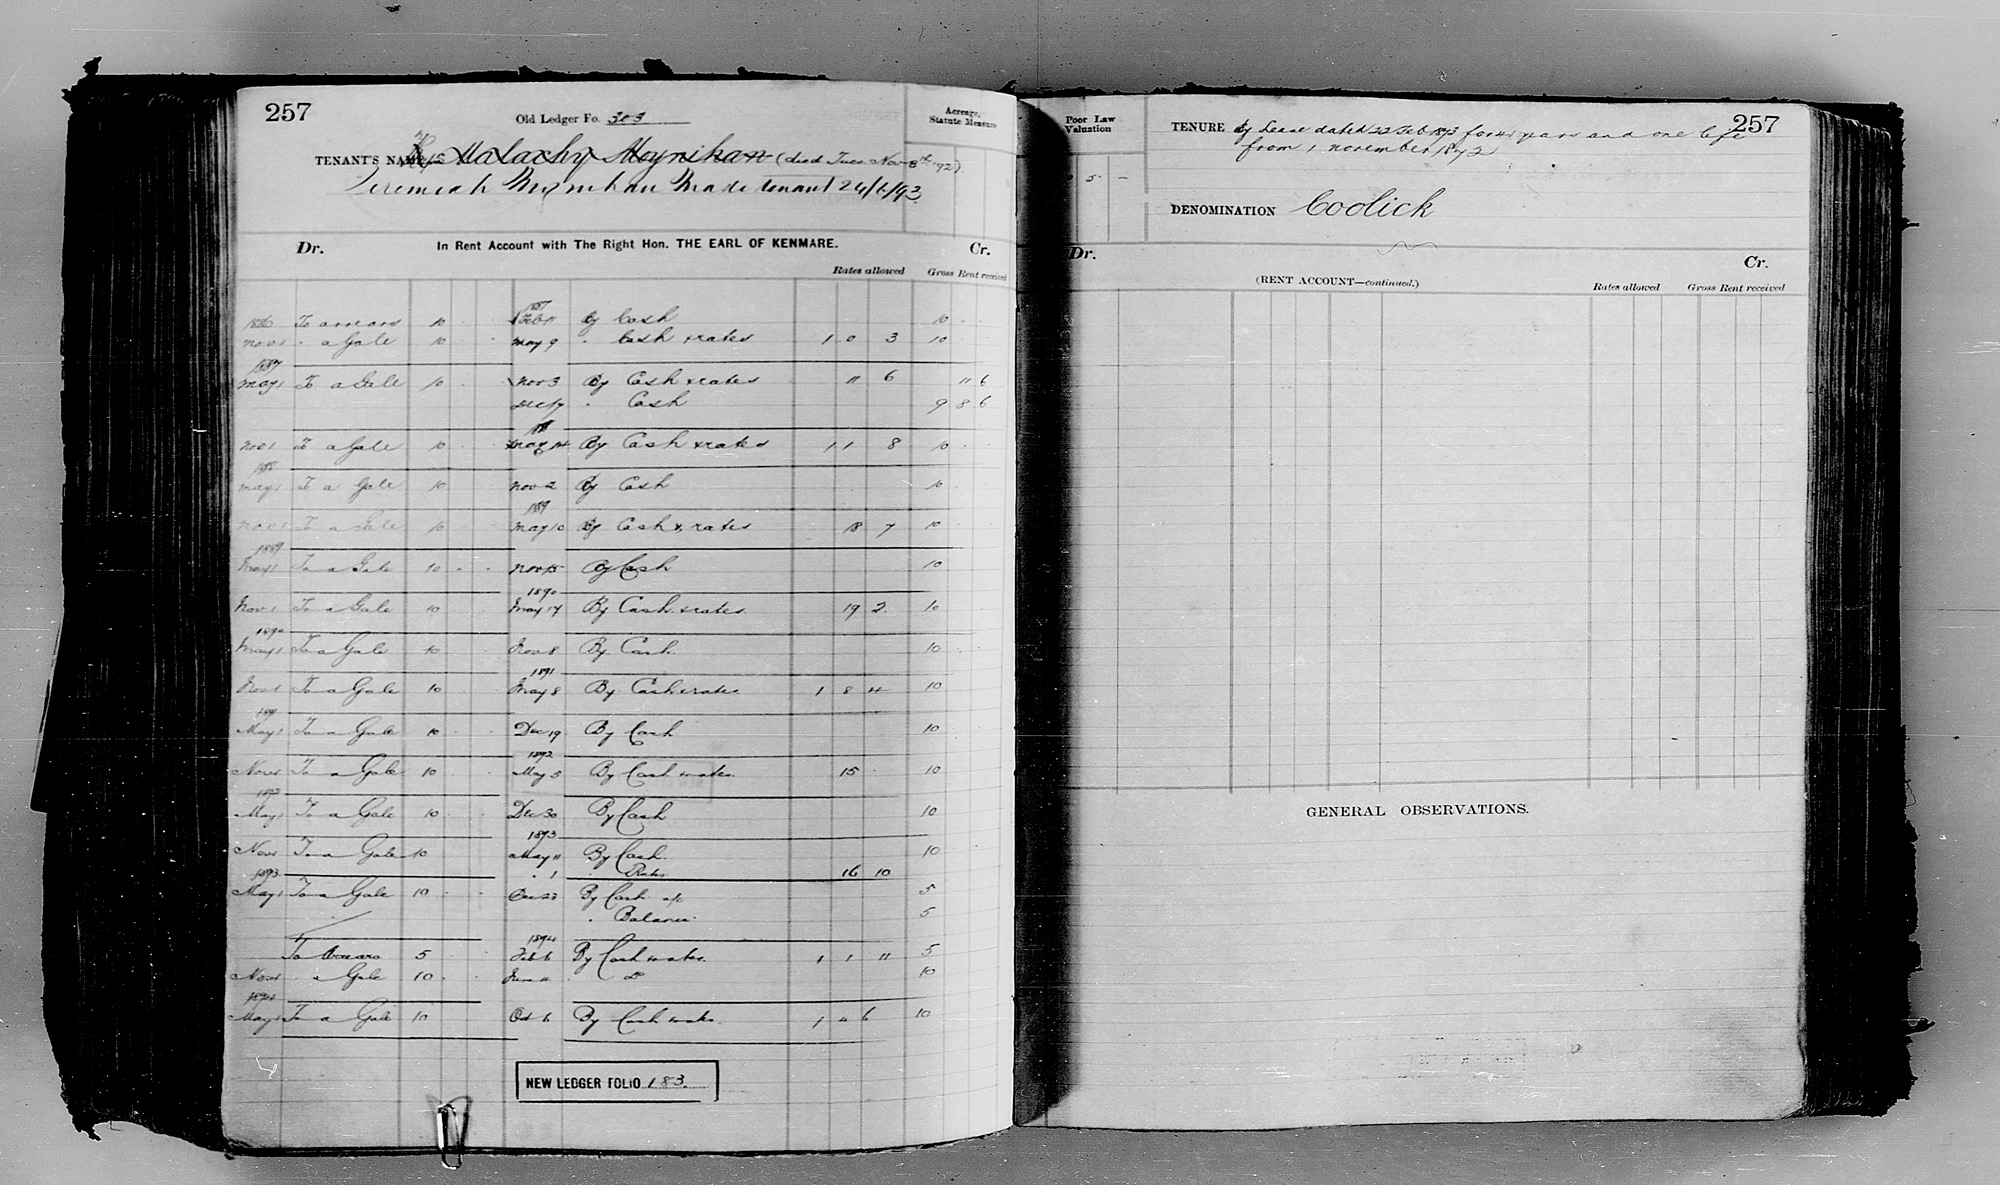 257
Old Ledger Fo. 303
Acreage,
Statute Measure
TENANT'S NAME Malachy Moynihan (died Tues. Nov 8th '92)
Jeremiah Moynihan Made tenant 24/6/93
Dr. In Rent Account with The Right Hon. THE EARL OF KENMARE. Cr.
Rates allowed Gross Rent received
1887
1886 To arrears 10 Feb 11 By Cash 10
Nov 1 " a Gale 10 May 9 " Cash & rates 1 0 3 10
1887
May 1 To a Gale 10 Nov 3 By Cash & rates 11 6 11 6
Dec 17 " Cash 9 8 6
Nov 1 To a Gale 10 May 14 By Cash & rates 1 1 8 10
1888
May 1 To a Gale 10 Nov 2 By Cash 10
1889
Nov 1 To a Gale 10 May 10 By Cash & rates 18 7 10
1889
May 1 To a Gale 10 Nov 15 By Cash 10
1890
Nov 1 To a Gale 10 May 17 By Cash & rates 19 2 10
1890
May 1 To a Gale 10 Nov 8 By Cash 10
1891
Nov 1 To a Gale 10 May 8 By Cash & rates 1 8 4 10
1891
May 1 To a Gale 10 Dec 19 By Cash 10
1892
Nov 1 To a Gale 10 May 5 By Cash & rates 15 10
1892
May 1 To a Gale 10 Dec 30 By Cash 10
1893
Nov 1 To a Gale 10 May 11 By Cash 10
" 1 " Rates 16 10
1893
May 1 To a Gale 10 Dec 23 By Cash a/c 5
" Balance 5
1894
To Arrears 5 Feb 6 By Cash & rates 1 1 11 5
Nov 1 " a Gale 10 June 11 " Do 10
1894
May 1 To a Gale 10 Oct 6 By Cash & rates 1 4 6 10
NEW LEDGER FOLIO 183.
Poor Law
Valuation
5 -
257
TENURE By Lease dated 22 Feb 1873 for 41 years and one life
from 1 november 1872
DENOMINATION Coolick
Dr. Cr.
(RENT ACCOUNT—continued.) Rates allowed Gross Rent received
GENERAL OBSERVATIONS.